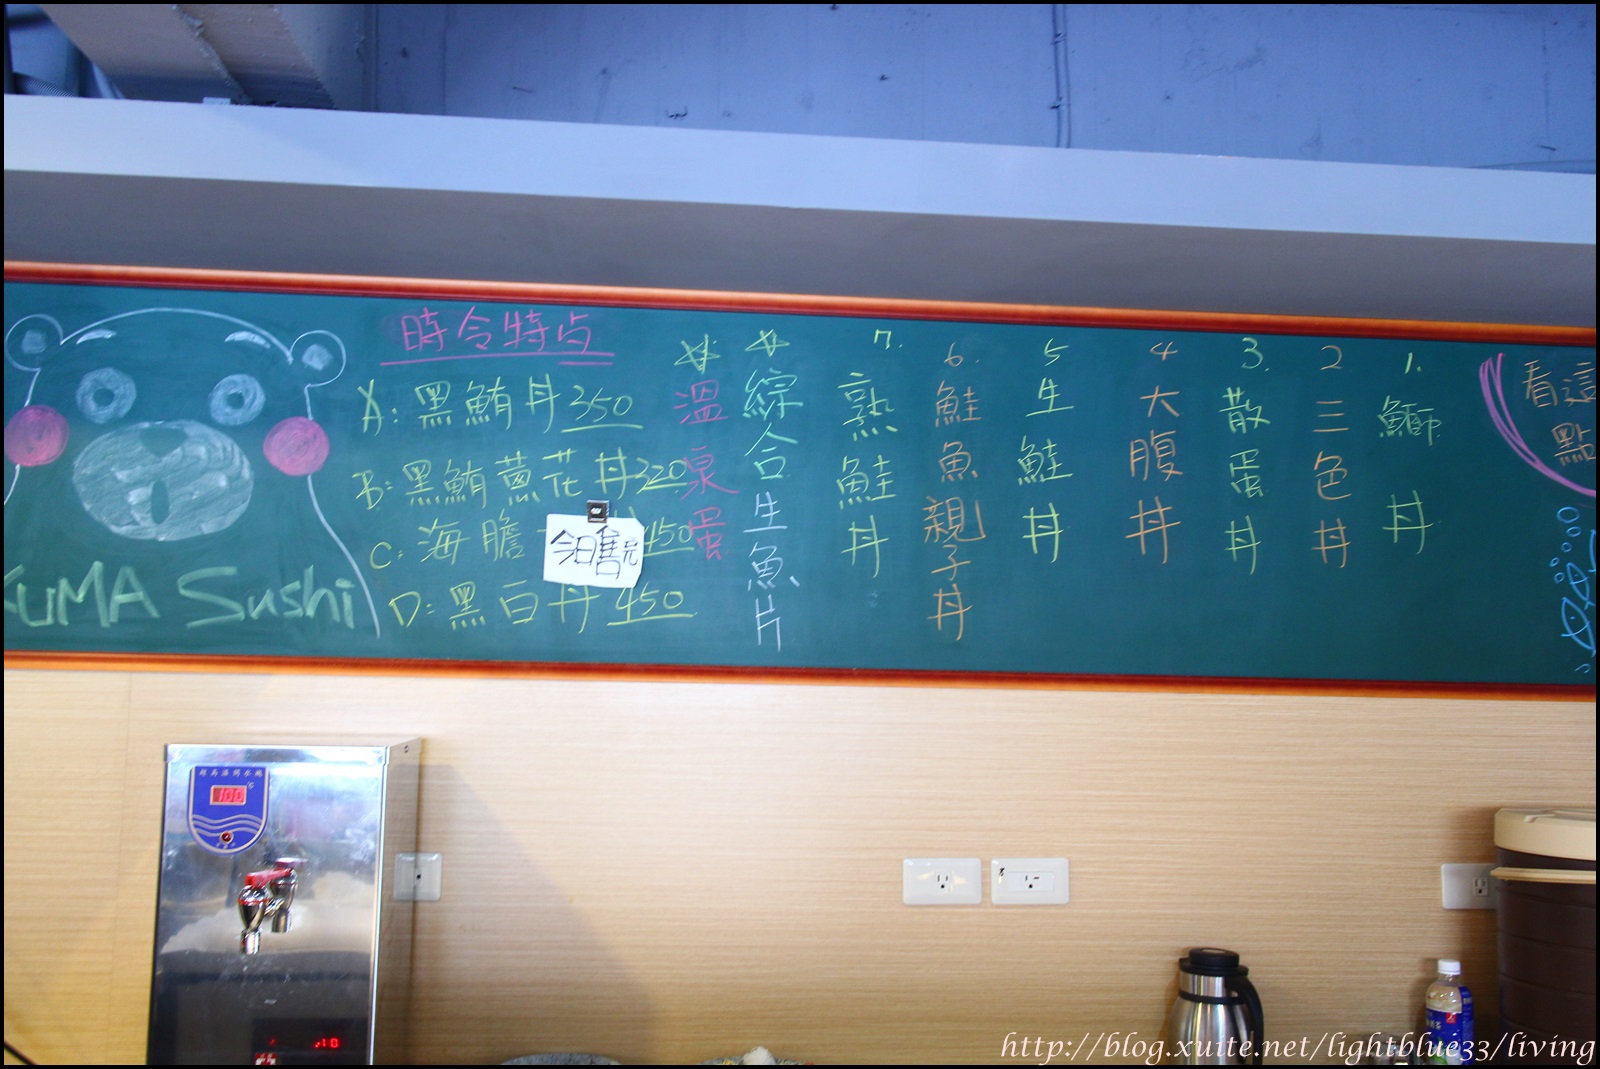 看這
點
1. 鰤丼
2 三色丼
3. 散蛋丼
4 大腹丼
5 生鮭丼
6. 鮭魚親子丼
7. 熟鮭丼
綜合生魚片
溫泉蛋
時令特点
A: 黑鮪丼 350
B: 黑鮪蔥花丼 320
C: 海膽 450
今日售完
D: 黑白丼 450
KUMA Sushi
100
http://blog.xuite.net/lightblue33/living